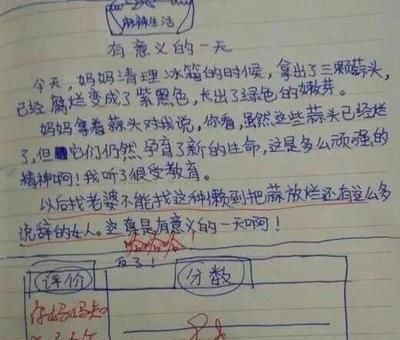 麻辣生活
有意义的一天
今天，妈妈清理冰箱的时候，拿出了三颗蒜头，
已经腐烂变成了紫黑色，长出了绿色的嫩芽。
妈妈拿着蒜头对我说，你看，虽然这些蒜头已经烂
了，但它们仍然孕育了新的生命，这是多么顽强的
精神啊！我听了很受教育。
以后找老婆不能找这种懒到把蒜放烂还有这么多
说辞的女人。这真是有意义的一天啊！
哈哈哈
反了！
评价
分数
你妈妈知